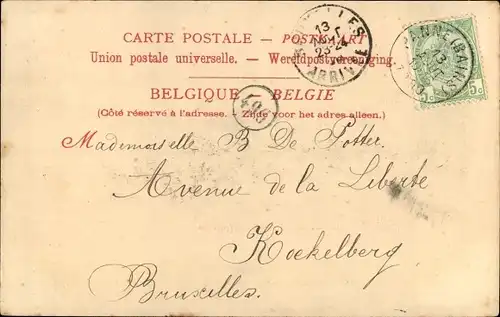 CARTE POSTALE – POSTKAART
Union postale universelle. – Wereldpostvereeniging.
BELGIQUE – BELGIE
(Côté réservé à l'adresse. – Zijde voor het adres alleen.)
13
23-24
ARRIV
13
5c 5c
Mademoiselle B De Potter
Avenue de la Liberté
Koekelberg
Bruxelles.